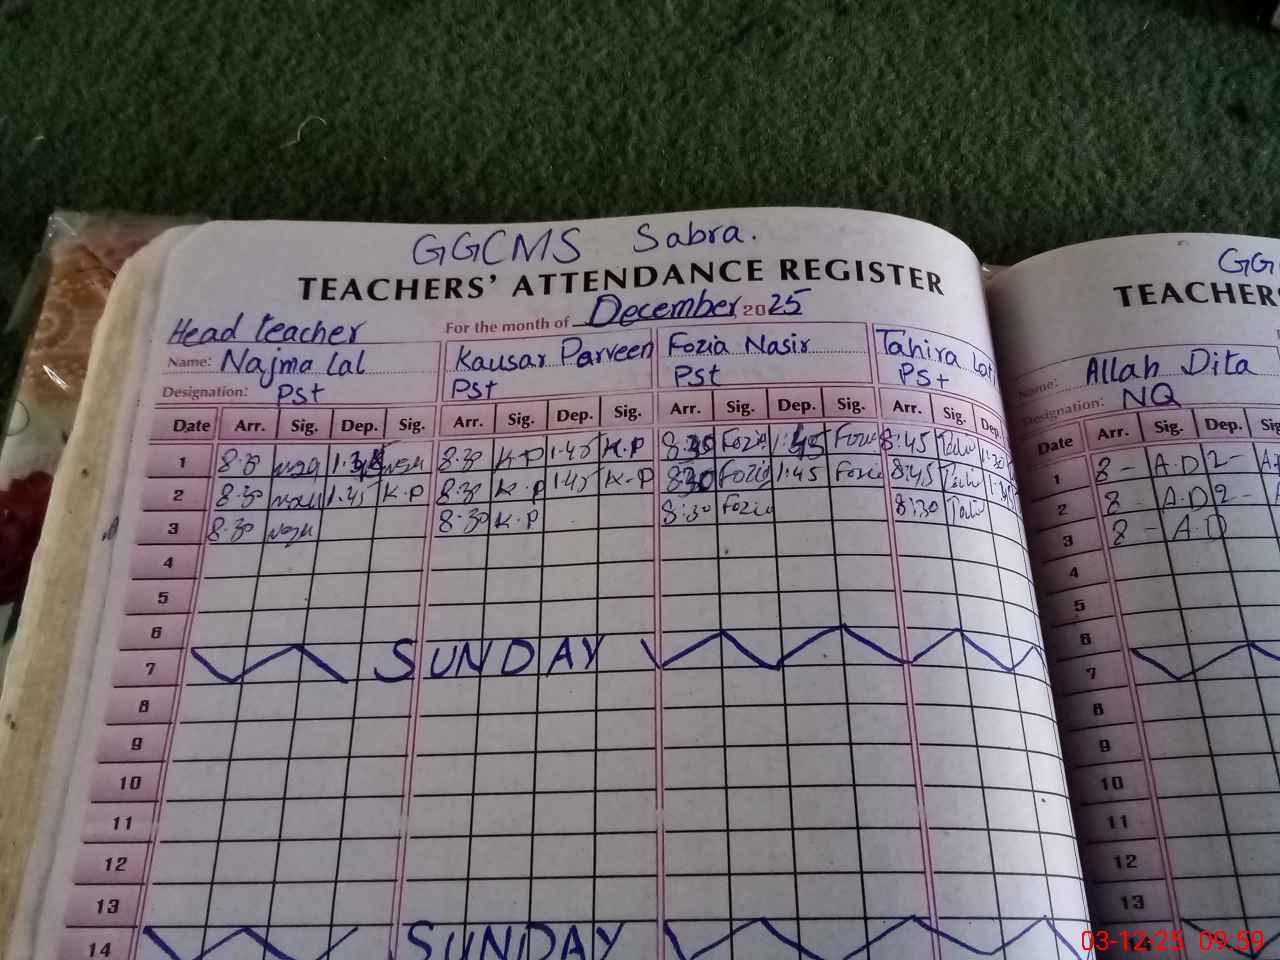 GGCMS Sabra.
TEACHERS' ATTENDANCE REGISTER
For the month of December 2025
Head teacher
Name: Najma Lal Kausar Parveen Fozia Nasir Tahira
Designation: PSt PSt PSt PSt
Date Arr. Sig. Dep. Sig. Arr. Sig. Dep. Sig. Arr. Sig. Dep. Sig. Arr. Sig. Dep.
1 8:30 8:30 K.P 1:45 K.P Fozia 8:45
2 8:30 1:45 K.P 8:30 K.P 1:45 K.P 8:30 Fozia 1:45 Fozia 8:45
3 8:30 8:30 K.P 8:30 Fozia 8:30
4
5
6
7 SUNDAY
8
9
10
11
12
13
14 SUNDAY
GG
TEACHERS
Name: Allah Dita
Designation: NQ
Date Arr. Sig. Dep.
1 8 - A.D 2 -
2 8 - A.D 2 -
3 8 - A.D
4
5
6
7
8
9
10
11
12
13
03-12-25 09:59